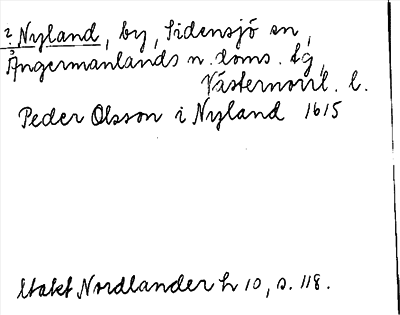 2 Nyland, by, Sidensjö sn,
Ångermanlands n. doms. tg,
Västernorrl. l.
Peder Olsson i Nyland 1615
Utakt Nordlander h 10, s. 118.